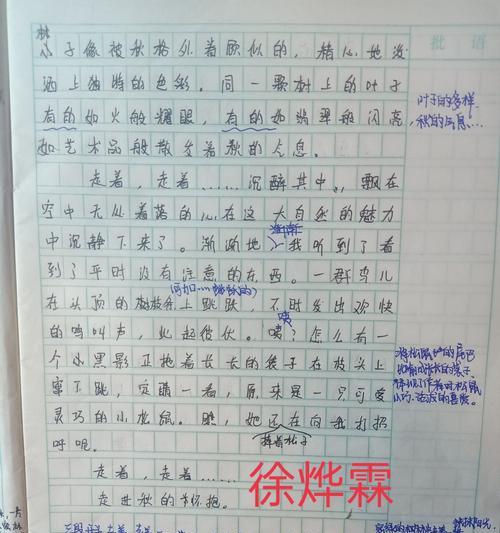 批语
林
子像被秋格外眷顾似的,精心地泼
洒上独特的色彩。同一颗树上的叶子
有的如火般耀眼,有的如翡翠般闪亮,
如艺术品般散发着秋的气息。
叶子的多样,
秋的气息……
走着,走着……沉醉其中,飘在
空中无处着落的心在这大自然的魅力
中沉静下来了。渐渐地 我听到了看
渐渐
到了平时没有注意的东西。一群鸟儿
在头顶的树枝上跳跃,不时发出欢快
的鸣叫声,此起彼伏。咦?怎么有一
咦
个小黑影正拖着长长的袋子在枝头上
窜下跳,定睛一看,原来是一只可爱
灵巧的小松鼠。瞧,她还在向我打招
呼呢。
捧着松子
走着,走着……
走进秋的怀抱。
徐烨霖